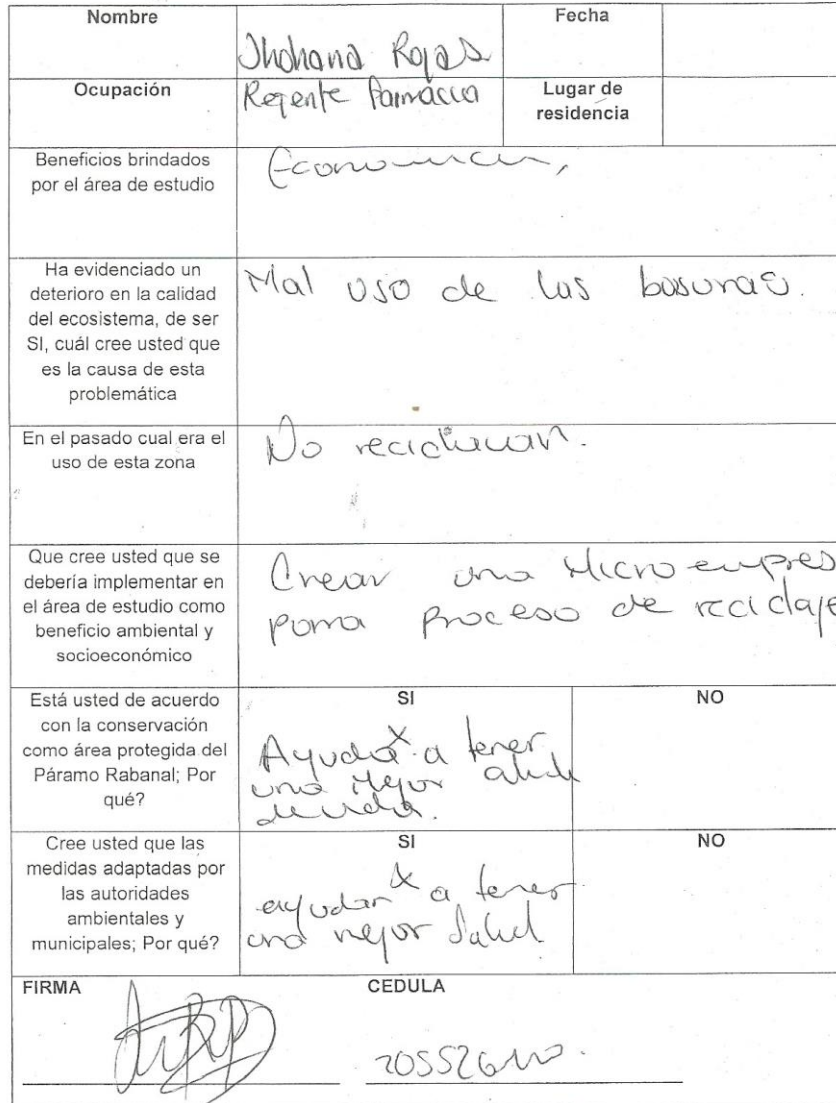 Nombre
Jhohana Rojas
Fecha
Ocupación
Regente Farmacia
Lugar de
residencia
Beneficios brindados
por el área de estudio
Ha evidenciado un
deterioro en la calidad
del ecosistema, de ser
SI, cuál cree usted que
es la causa de esta
problemática
Mal uso de las basuras.
En el pasado cual era el
uso de esta zona
No
Que cree usted que se
debería implementar en
el área de estudio como
beneficio ambiental y
socioeconómico
Crear una Microempres
para proceso de reciclaje
Está usted de acuerdo
con la conservación
como área protegida del
Páramo Rabanal; Por
qué?
SI
X
Ayuda a tener
una Mejor
NO
Cree usted que las
medidas adaptadas por
las autoridades
ambientales y
municipales; Por qué?
SI
X
ayudan a tener
una mejor Salud
NO
FIRMA
CEDULA